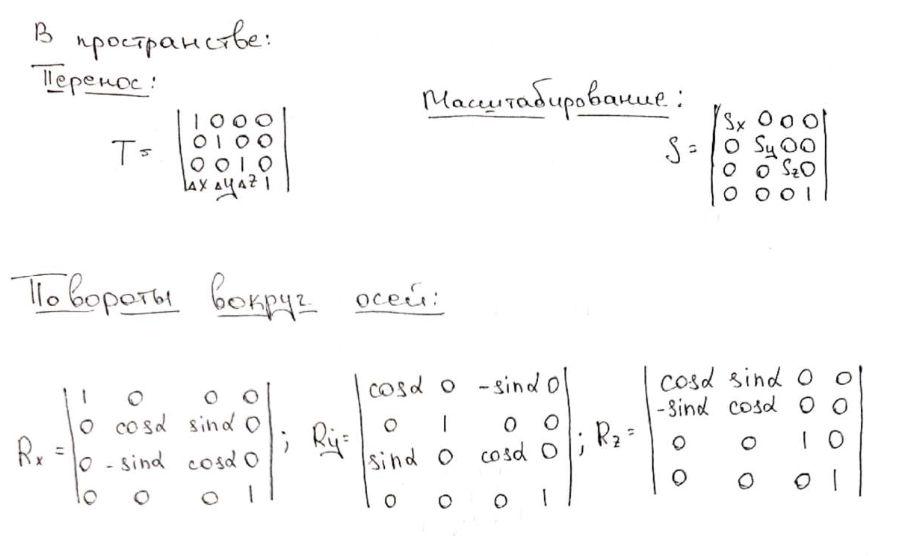 В пространстве:
Перенос:
T= |1 0 0 0|
|0 1 0 0|
|0 0 1 0|
|Δx Δy Δz 1|
Масштабирование:
S= |Sx 0 0 0|
|0 Sy 0 0|
|0 0 Sz 0|
|0 0 0 1|
Повороты вокруг осей:
Rx= |1 0 0 0|
|0 cosα sinα 0|
|0 -sinα cosα 0|
|0 0 0 1| ;
Ry= |cosα 0 -sinα 0|
|0 1 0 0|
|sinα 0 cosα 0|
|0 0 0 1| ;
Rz= |cosα sinα 0 0|
|-sinα cosα 0 0|
|0 0 1 0|
|0 0 0 1|